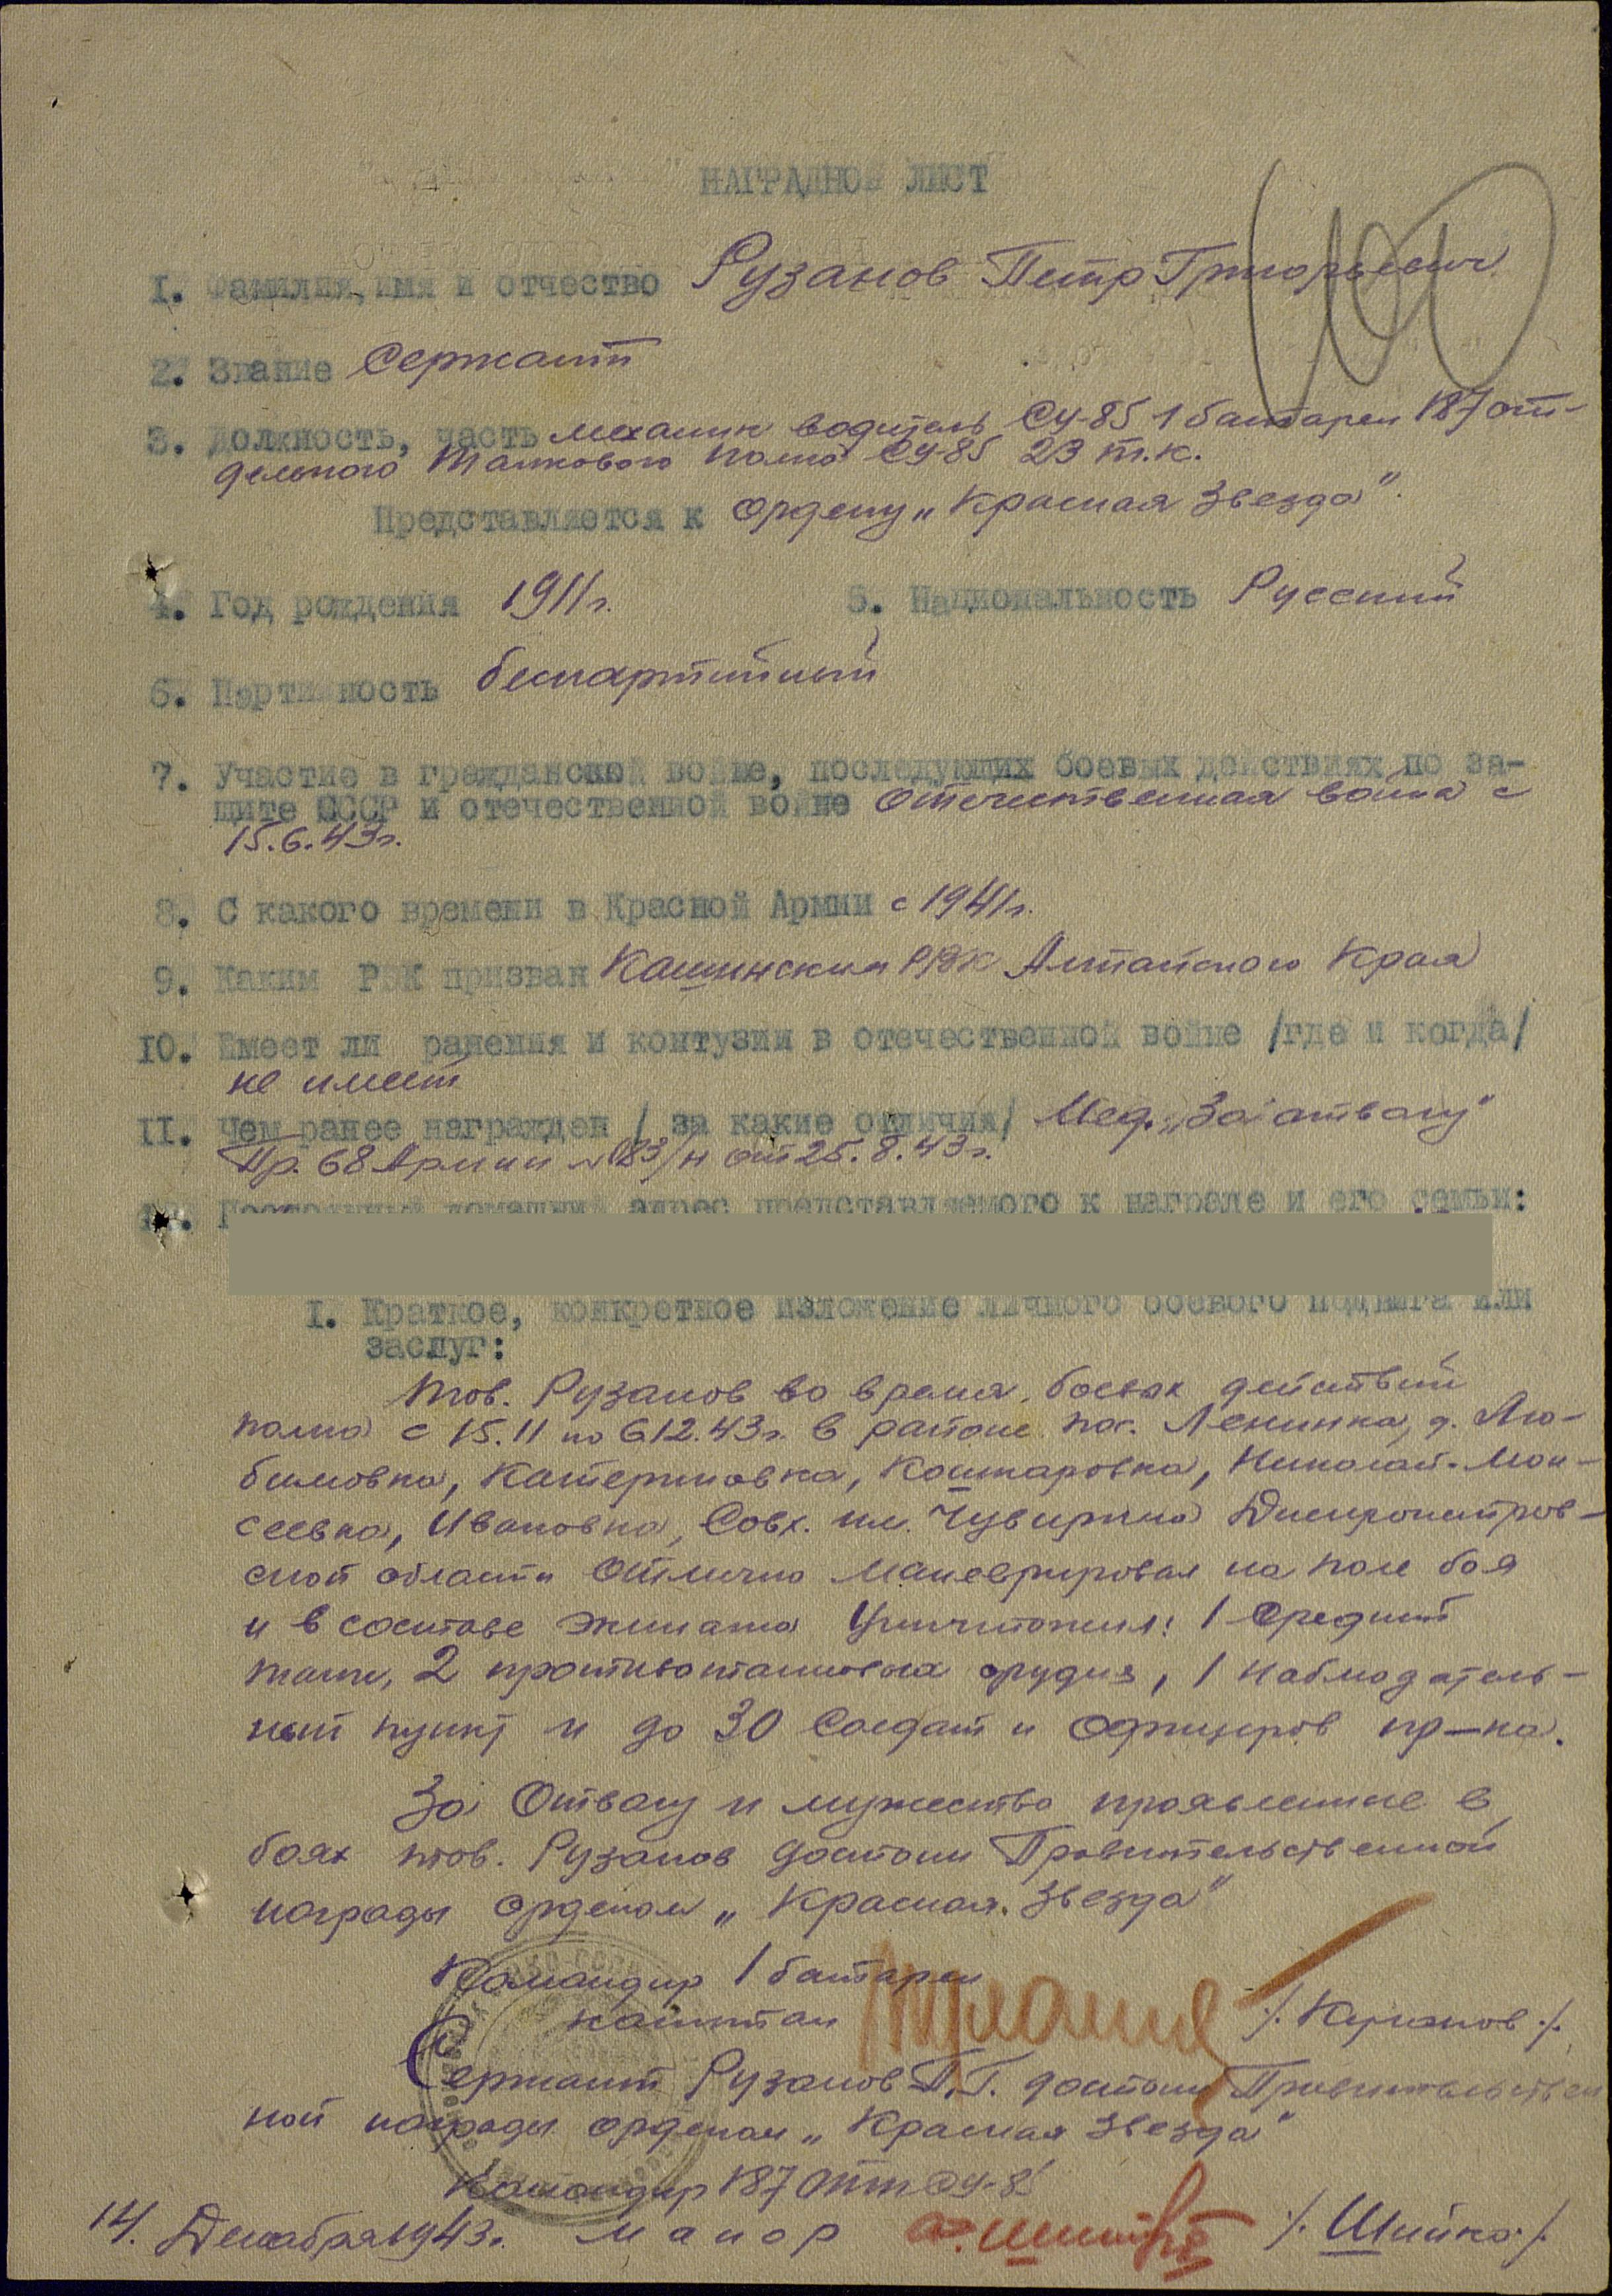 НАГРАДНОЙ ЛИСТ
1. Фамилия, имя и отчество Рузанов Петр Григорьевич
2. Звание Сержант
3. Должность, часть механик водитель СУ-85 1 батареи 187 от-
дельного Танкового полка СУ-85 23 т.к.
Представляется к ордену „Красная Звезда".
4. Год рождения 1911г. 5. Национальность Русский
6. Партийность беспартийный
7. Участие в гражданской войне, последующих боевых действиях по за-
щите СССР и отечественной войне Отечественная война с
15.6.43г.
8. С какого времени в Красной Армии с 1941г.
9. Каким РВК призван РВК Алтайского Края
10. Имеет ли ранения и контузии в отечественной войне /где и когда/
не имеет
11. Чем ранее награжден / за какие отличия/ Мед. „За отвагу"
Пр. 68 Армии №083/н от 25.8.43г.
12. Постоянный домашний адрес представляемого к награде и его семьи:
1. Краткое, конкретное изложение личного боевого подвига или
заслуг:
Тов. Рузанов во время боевых действий
полка с 15.11 по 6.12.43г. в районе пос. Ленинка, д. Лю-
бимовка, Катериновка, Кошкаровка, Николай-Мои-
сеевка, Ивановка, Совх. им. Чувирина Днепропетров-
ской области Отлично маневрировал на поле боя
и в составе экипажа Уничтожил: 1 средний
танк, 2 противотанковых орудия, 1 наблюдатель-
ный пункт и до 30 Солдат и Офицеров пр-ка.
За Отвагу и мужество проявленные в
боях тов. Рузанов достоин Правительственной
награды орденом „Красная Звезда"
Командир 1 батареи
капитан /. .
Сержант Рузанов П.Г. достоин Правительствен
ной награды орденом „Красная Звезда"
Командир 187 отп СУ-85
14. Декабря 1943г. майор /. Шийка ./